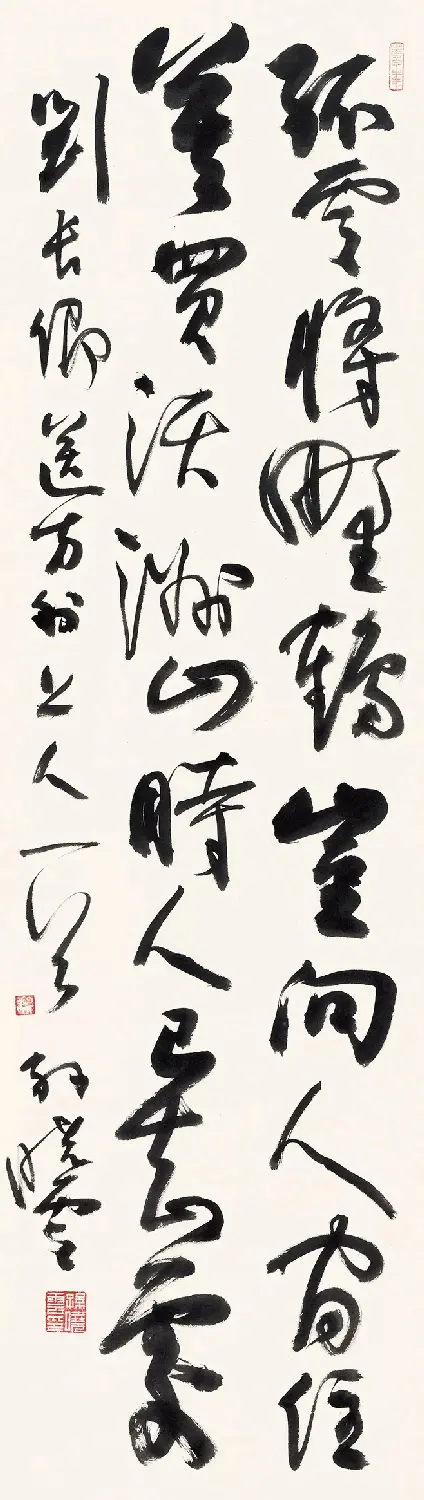 孤雲將野鶴豈向人間住
莫買沃洲山時人已知處
劉長卿送方外上人一
孫曉雲